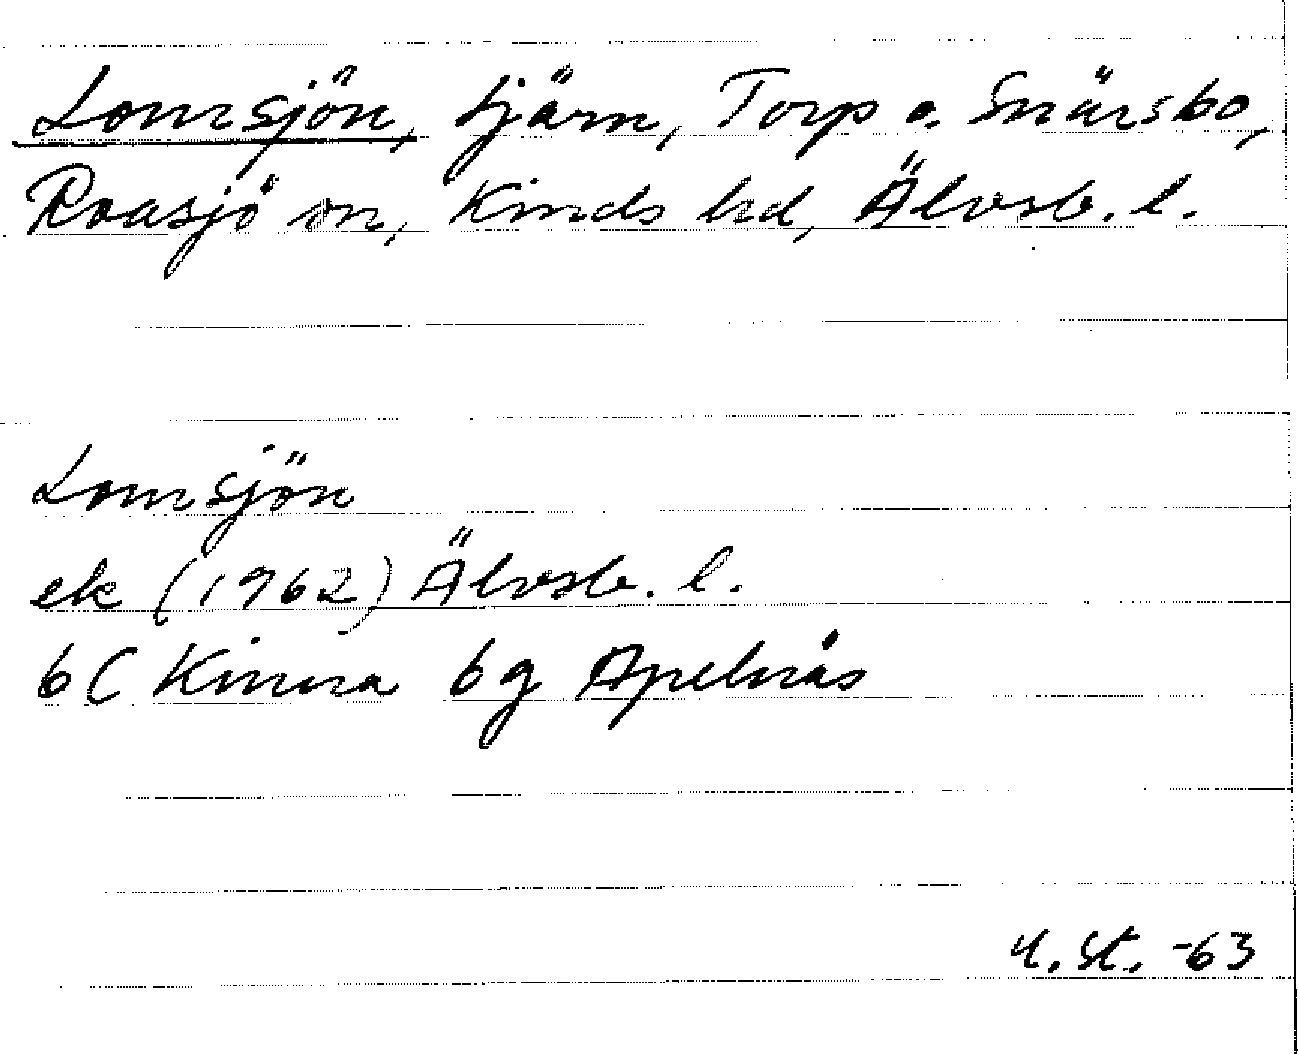 Lomsjön, tjärn, Torp o. Snärsbo,
Roasjö sn, Kinds hd, Älvsb. l.
Lomsjön
ek (1962) Älvsb. l.
6C Kinna 6g Apelnäs
U. St. -63